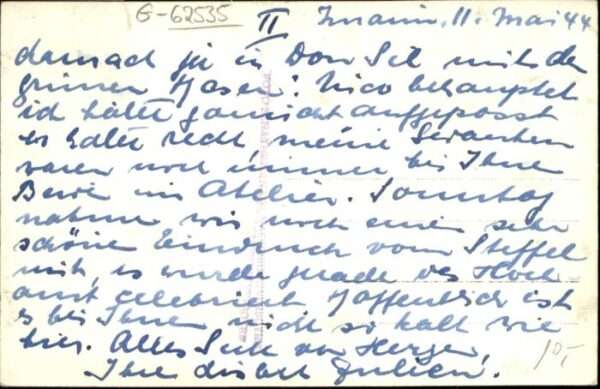 G-62535
II Znaim, 11. Mai 44
danach ja in Don Sil mit der
grünen Hasen: Nico behauptet
ich hätte garnicht aufgepasst
er hatte recht, meine Gedanken
waren noch immer bei Ihne
Berie im Atelier. Sonntag
nahmen wir noch einen sehr
schöne Eindruck vom Steffel
mit, es wurde gerade das Hoch
amt celebriert Hoffentlich ist
es bei Ihnen nicht so kalt wie
hier. Alles Gute von Herzen,
Ihre
10,-